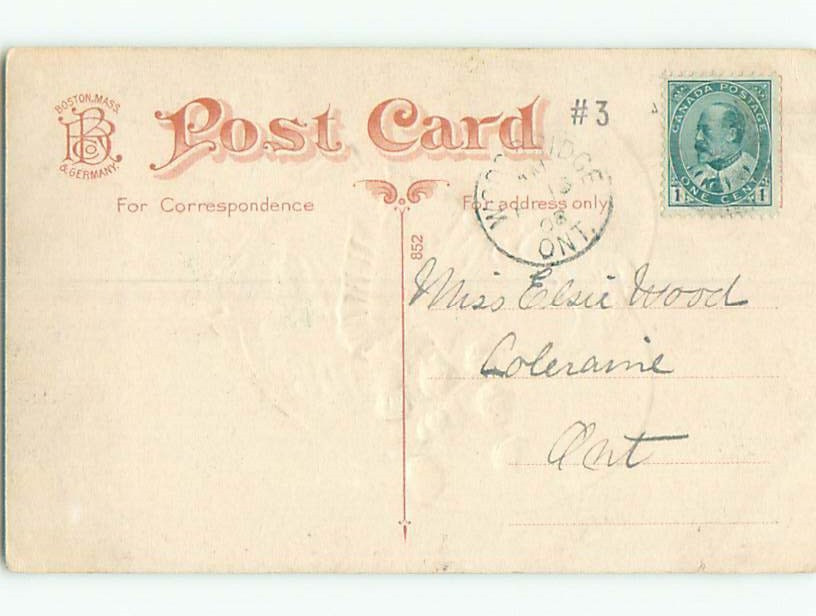 BOSTON, MASS.
& GERMANY.
Post Card
#3
CANADA POSTAGE
1 ONE CENT 1
For Correspondence
For address only
WOODBRIDGE
15
08
ONT.
852
Miss Elsie Wood
Coleraine
Ont